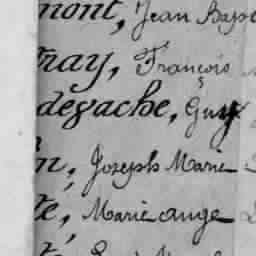 mont, Jean Bapt
fray, François
degache, Guy
n, Joseph Marie
te, Marie ange